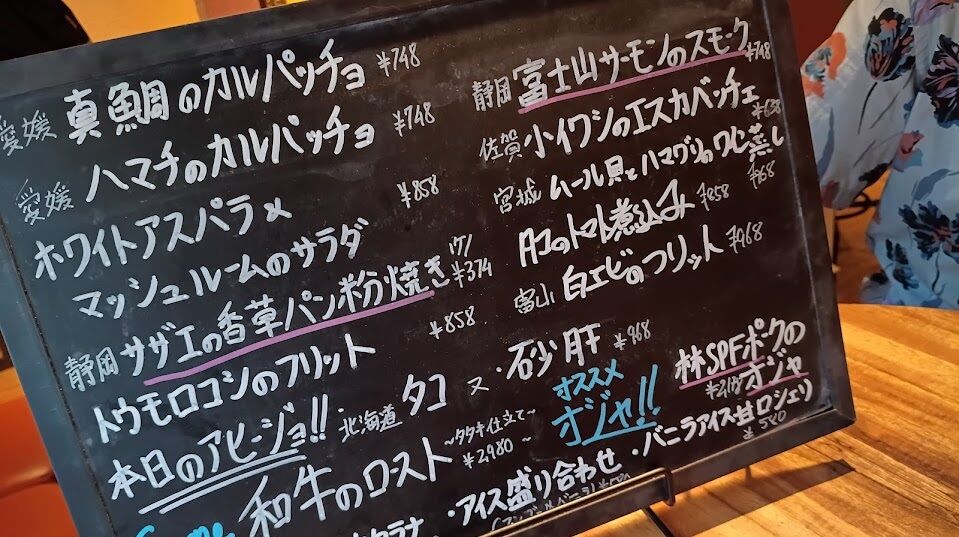 愛媛 真鯛のカルパッチョ ¥748
愛媛 ハマチのカルパッチョ ¥748
ホワイトアスパラ×
マッシュルームのサラダ ¥858
静岡 サザエの香草パン粉焼き 1ケ/¥374
トウモロコシのフリット ¥858
本日のアヒージョ!!・北海道 タコ 又・砂肝 ¥968
和牛のロースト ~タタキ仕立て~ ¥2,980~
カタラナ・アイス盛り合わせ・バニラアイス甘口シェリ
¥580
静岡 富士山サーモンのスモーク ¥748
佐賀 小イワシのエスカベッチェ ¥638
宮城 ムール貝とハマグリのワイン蒸し
¥968
タコのトマト煮込み ¥858
富山 白エビのフリット ¥968
オススメ
オジャ!!
林SPFポークの
オジャ